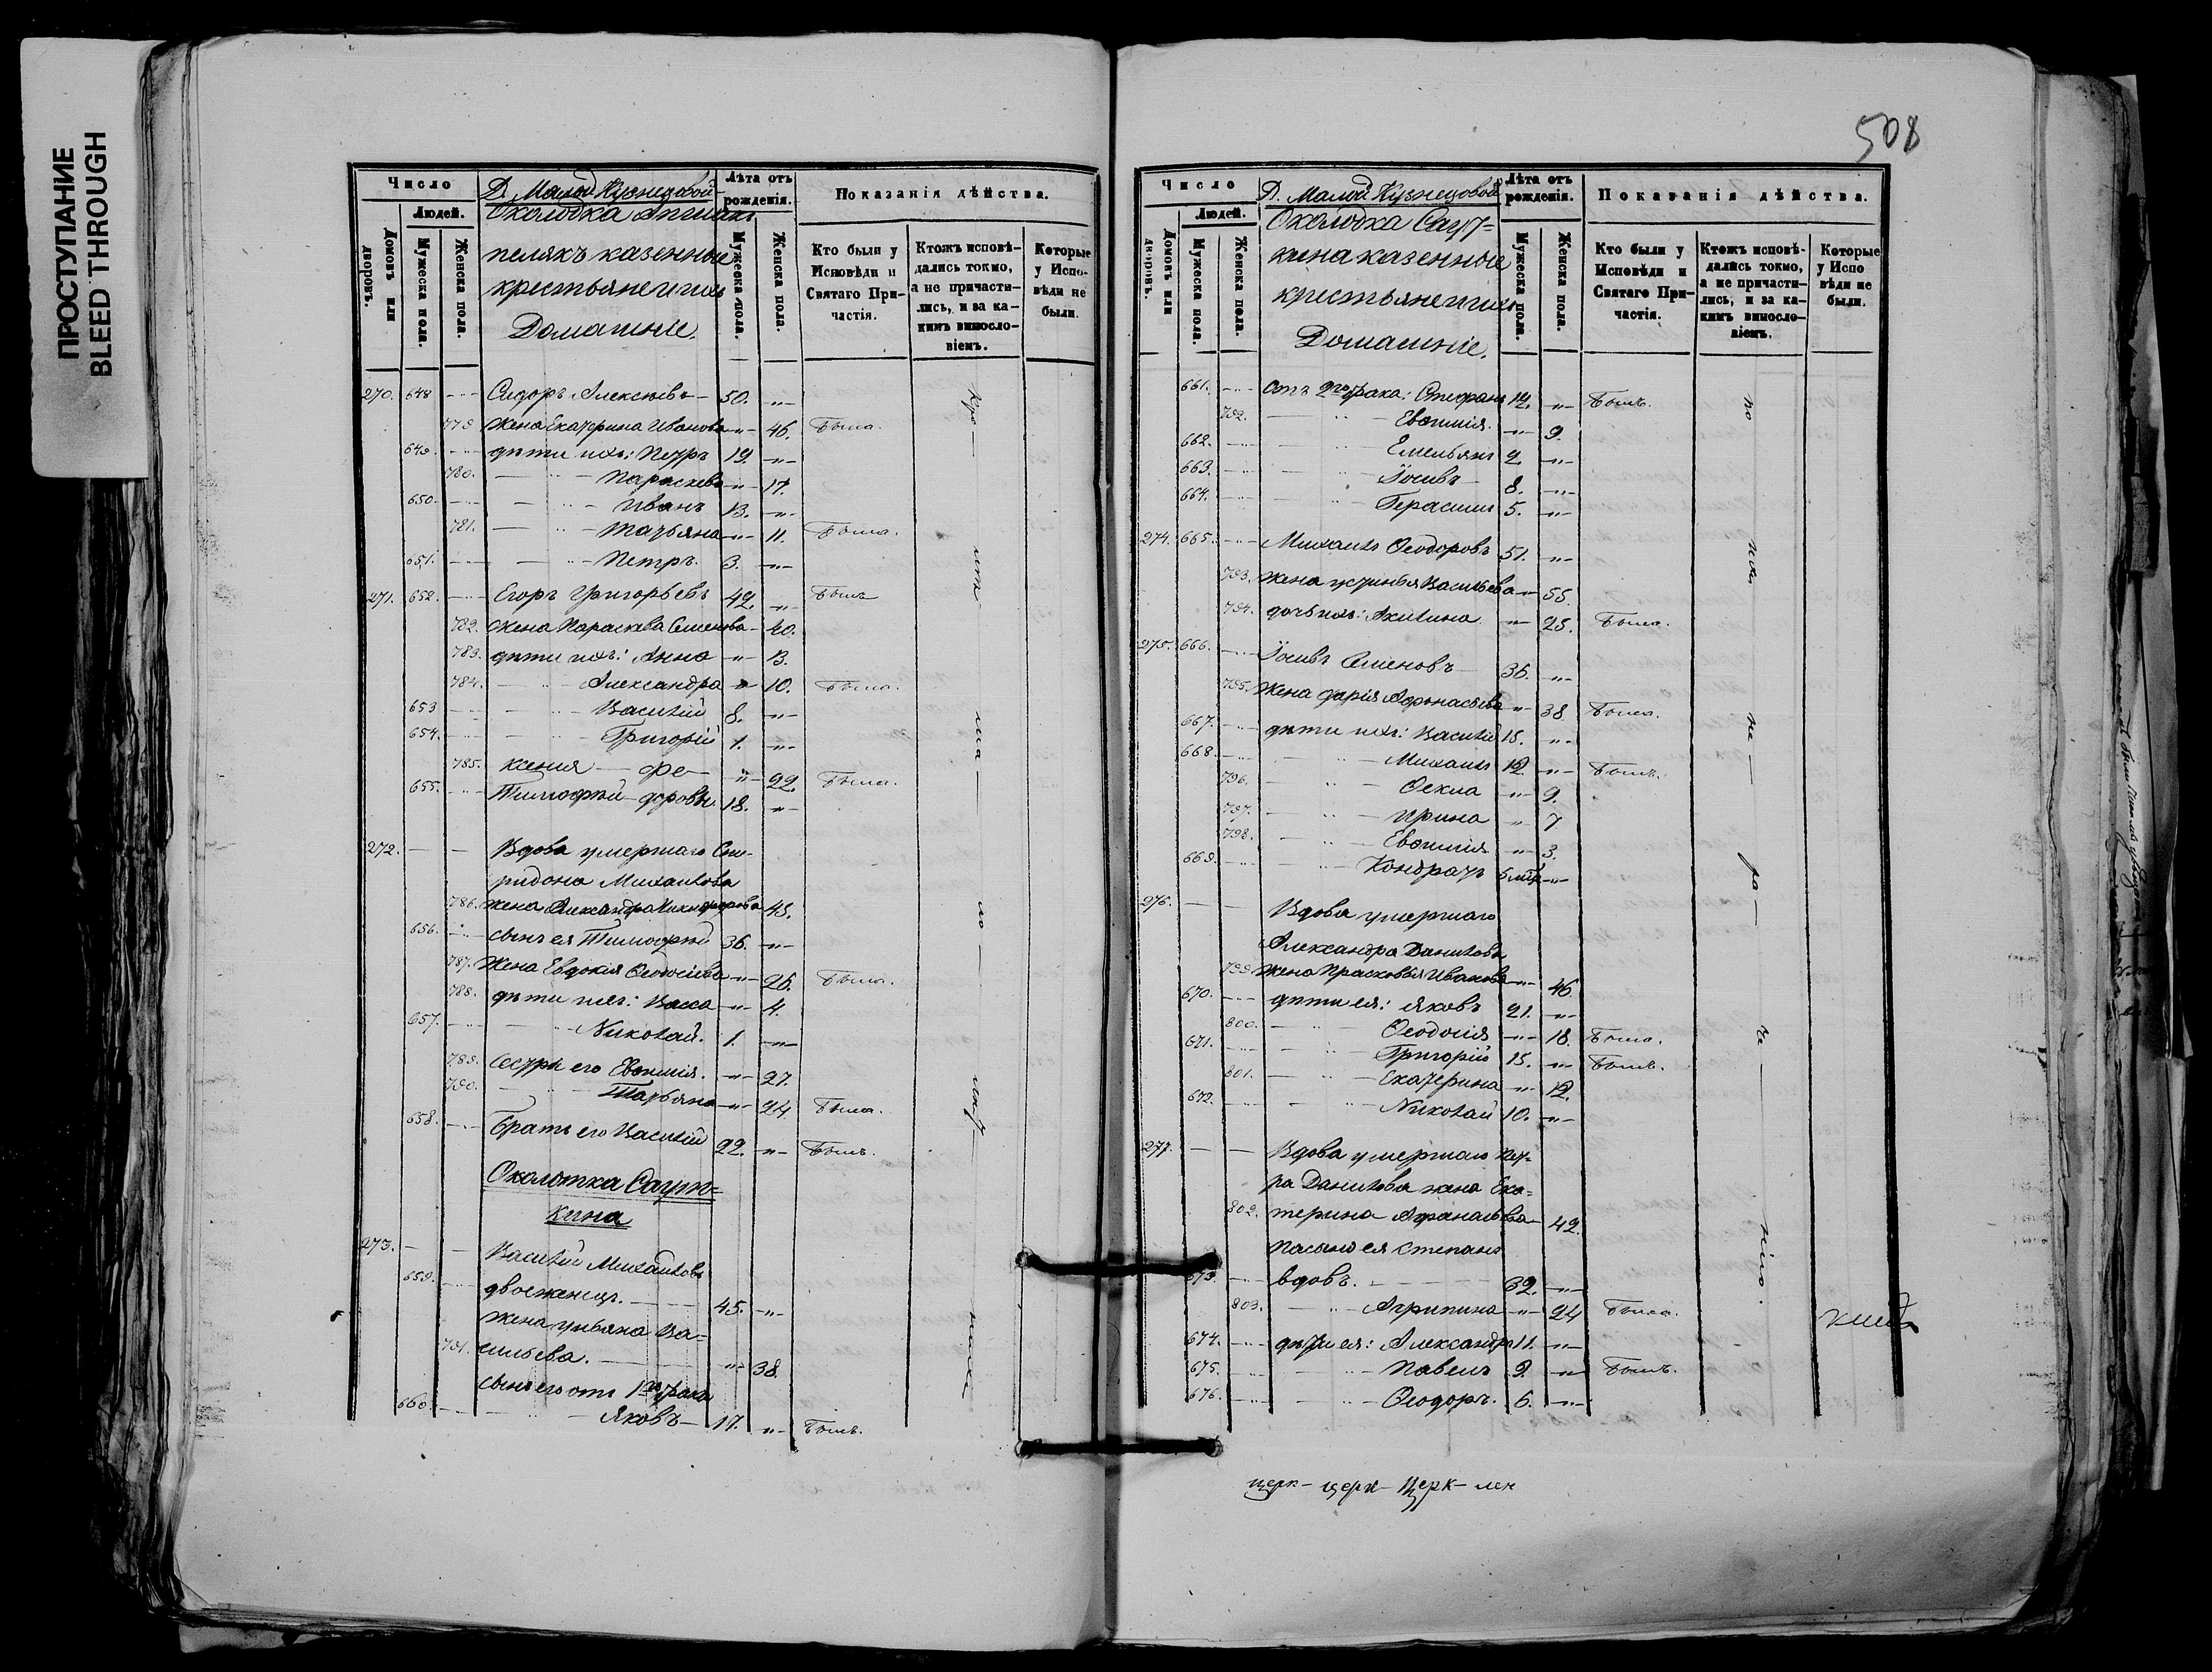 ПРОСТУПАНИЕ
BLEED THROUGH
Число
Людей.
Домовъ или дворовъ.
Мужеска пола.
Женска пола.
Д. Малой Кузнецовой
Околодка
казенные
крестьяне и ихъ
Домашніе.
Лѣта отъ рожденія.
Мужеска пола.
Женска пола.
Показанія дѣйства.
Кто были у Исповѣди и Святаго Причастія.
Ктожъ исповѣдались токмо, а не причастились, и за какимъ винословіемъ.
Которые у Исповѣди не были.
270. 648 Сидоръ Алексѣевъ 50.
779 Жена Екатерина Иванова 46. Была.
649. дѣти ихъ: Петръ 19.
780. Параскева 17.
650. Иванъ 13.
781. Татьяна 11. Была.
651. Петръ 3.
271. 652. Егоръ Григорьевъ 42. Былъ
782. Жена Параскева Семенова 40.
783. дѣти ихъ: Анна 13.
784. Александра 10. Была.
653 Василій 8.
654. Григорій 1.
785. Ксенія Фе- 22. Была.
655. Тимофѣй доровы 18.
272. Вдова умершаго Спи-
ридона Михайлова
786. жена Александра Никифорова 45.
656. сынъ ея Тимофѣй 36.
787. Жена Евдокія Ѳеодосіева 26. Была.
788. дѣти ихъ: Васса 4.
657. Николай. 1.
789. Сестры его Евфимія. 27.
790. Татьяна 24 Была.
658. Братъ его Василій 22. Былъ.
Околотка Саут-
кина
273. Василій Михайловъ
659. двоеженецъ. 45.
жена Ульяна Ва-
791. сильева. 38.
сынъ его отъ 1го брака
660. Яковъ 17. Былъ.
508
Число
Людей.
Домовъ или дворовъ.
Мужеска пола.
Женска пола.
Д. Малой Кузнецовой
Околодка Саут-
кина казенные
крестьяне и ихъ
Домашніе.
Лѣта отъ рожденія.
Мужеска пола.
Женска пола.
Показанія дѣйства.
Кто были у Исповѣди и Святаго Причастія.
Ктожъ исповѣдались токмо, а не причастились, и за какимъ винословіемъ.
Которые у Исповѣди не были.
661. отъ 2го брака: Стефанъ 12. Былъ.
792. Евфимія. 9.
662. Емельянъ 9
663. Іосифъ 8.
664. Герасимъ 5.
274. 665. Михаилъ Ѳеодоровъ 51.
793. жена Устинья Васильева 55.
794. дочь ихъ: Акилина 25. Была.
275. 666. Іосифъ Семеновъ 36.
795. Жена Дарія Афонасьева 38 Была.
667. дѣти ихъ: Василій 15.
668. Михаилъ 12. Былъ.
796. Ѳекла 9.
797. Ирина 7
798. Евфимія 3.
669. Кондратъ 5 мѣс
276. Вдова умершаго
Александра Данилова
799. жена Прасковья Иванова 46
670. дѣти ея: Яковъ 21.
800. Ѳеодосія 18. Была.
671. Григорій 15. Былъ.
801. Екатерина 12.
672. Николай 10.
277. Вдова умершаго Пет-
ра Данилова жена Ека-
802. терина Афанасьева 42.
пасынъ ея Степанъ
673. вдовъ. 32.
803. Агрипина 24 Была.
674. дѣти ея: Александръ 11.
675. Павелъ 9. Былъ.
676. Ѳеодоръ. 6.